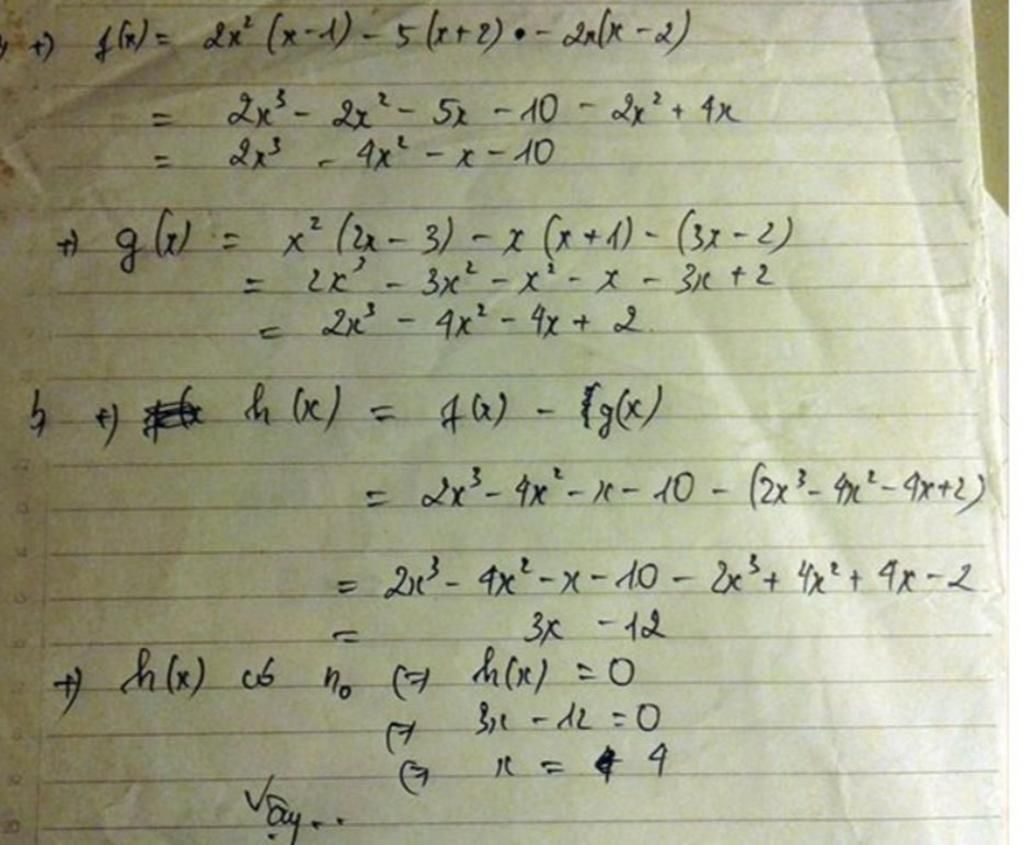 +) f(x) = 2x² (x-1) - 5(x+2) - 2x(x-2)
= 2x³ - 2x² - 5x - 10 - 2x² + 4x
= 2x³ - 4x² - x - 10
+) g(x) = x² (2x - 3) - x (x+1) - (3x - 2)
= 2x³ - 3x² - x² - x - 3x + 2
= 2x³ - 4x² - 4x + 2
b, +) h(x) = f(x) - g(x)
= 2x³ - 4x² - x - 10 - (2x³ - 4x² - 4x+2)
= 2x³ - 4x² - x - 10 - 2x³ + 4x² + 4x - 2
= 3x - 12
+) h(x) có n₀ (=) h(x) = 0
(=) 3x - 12 = 0
(=) x = 4
Vậy...